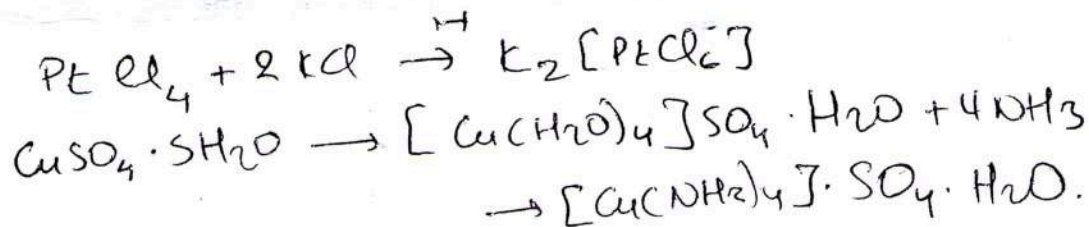 PtCl₄ + 2KCl → K₂[PtCl₆]
CuSO₄·5H₂O → [Cu(H₂O)₄]SO₄·H₂O + 4NH₃
→ [Cu(NH₂)₄]·SO₄·H₂O.